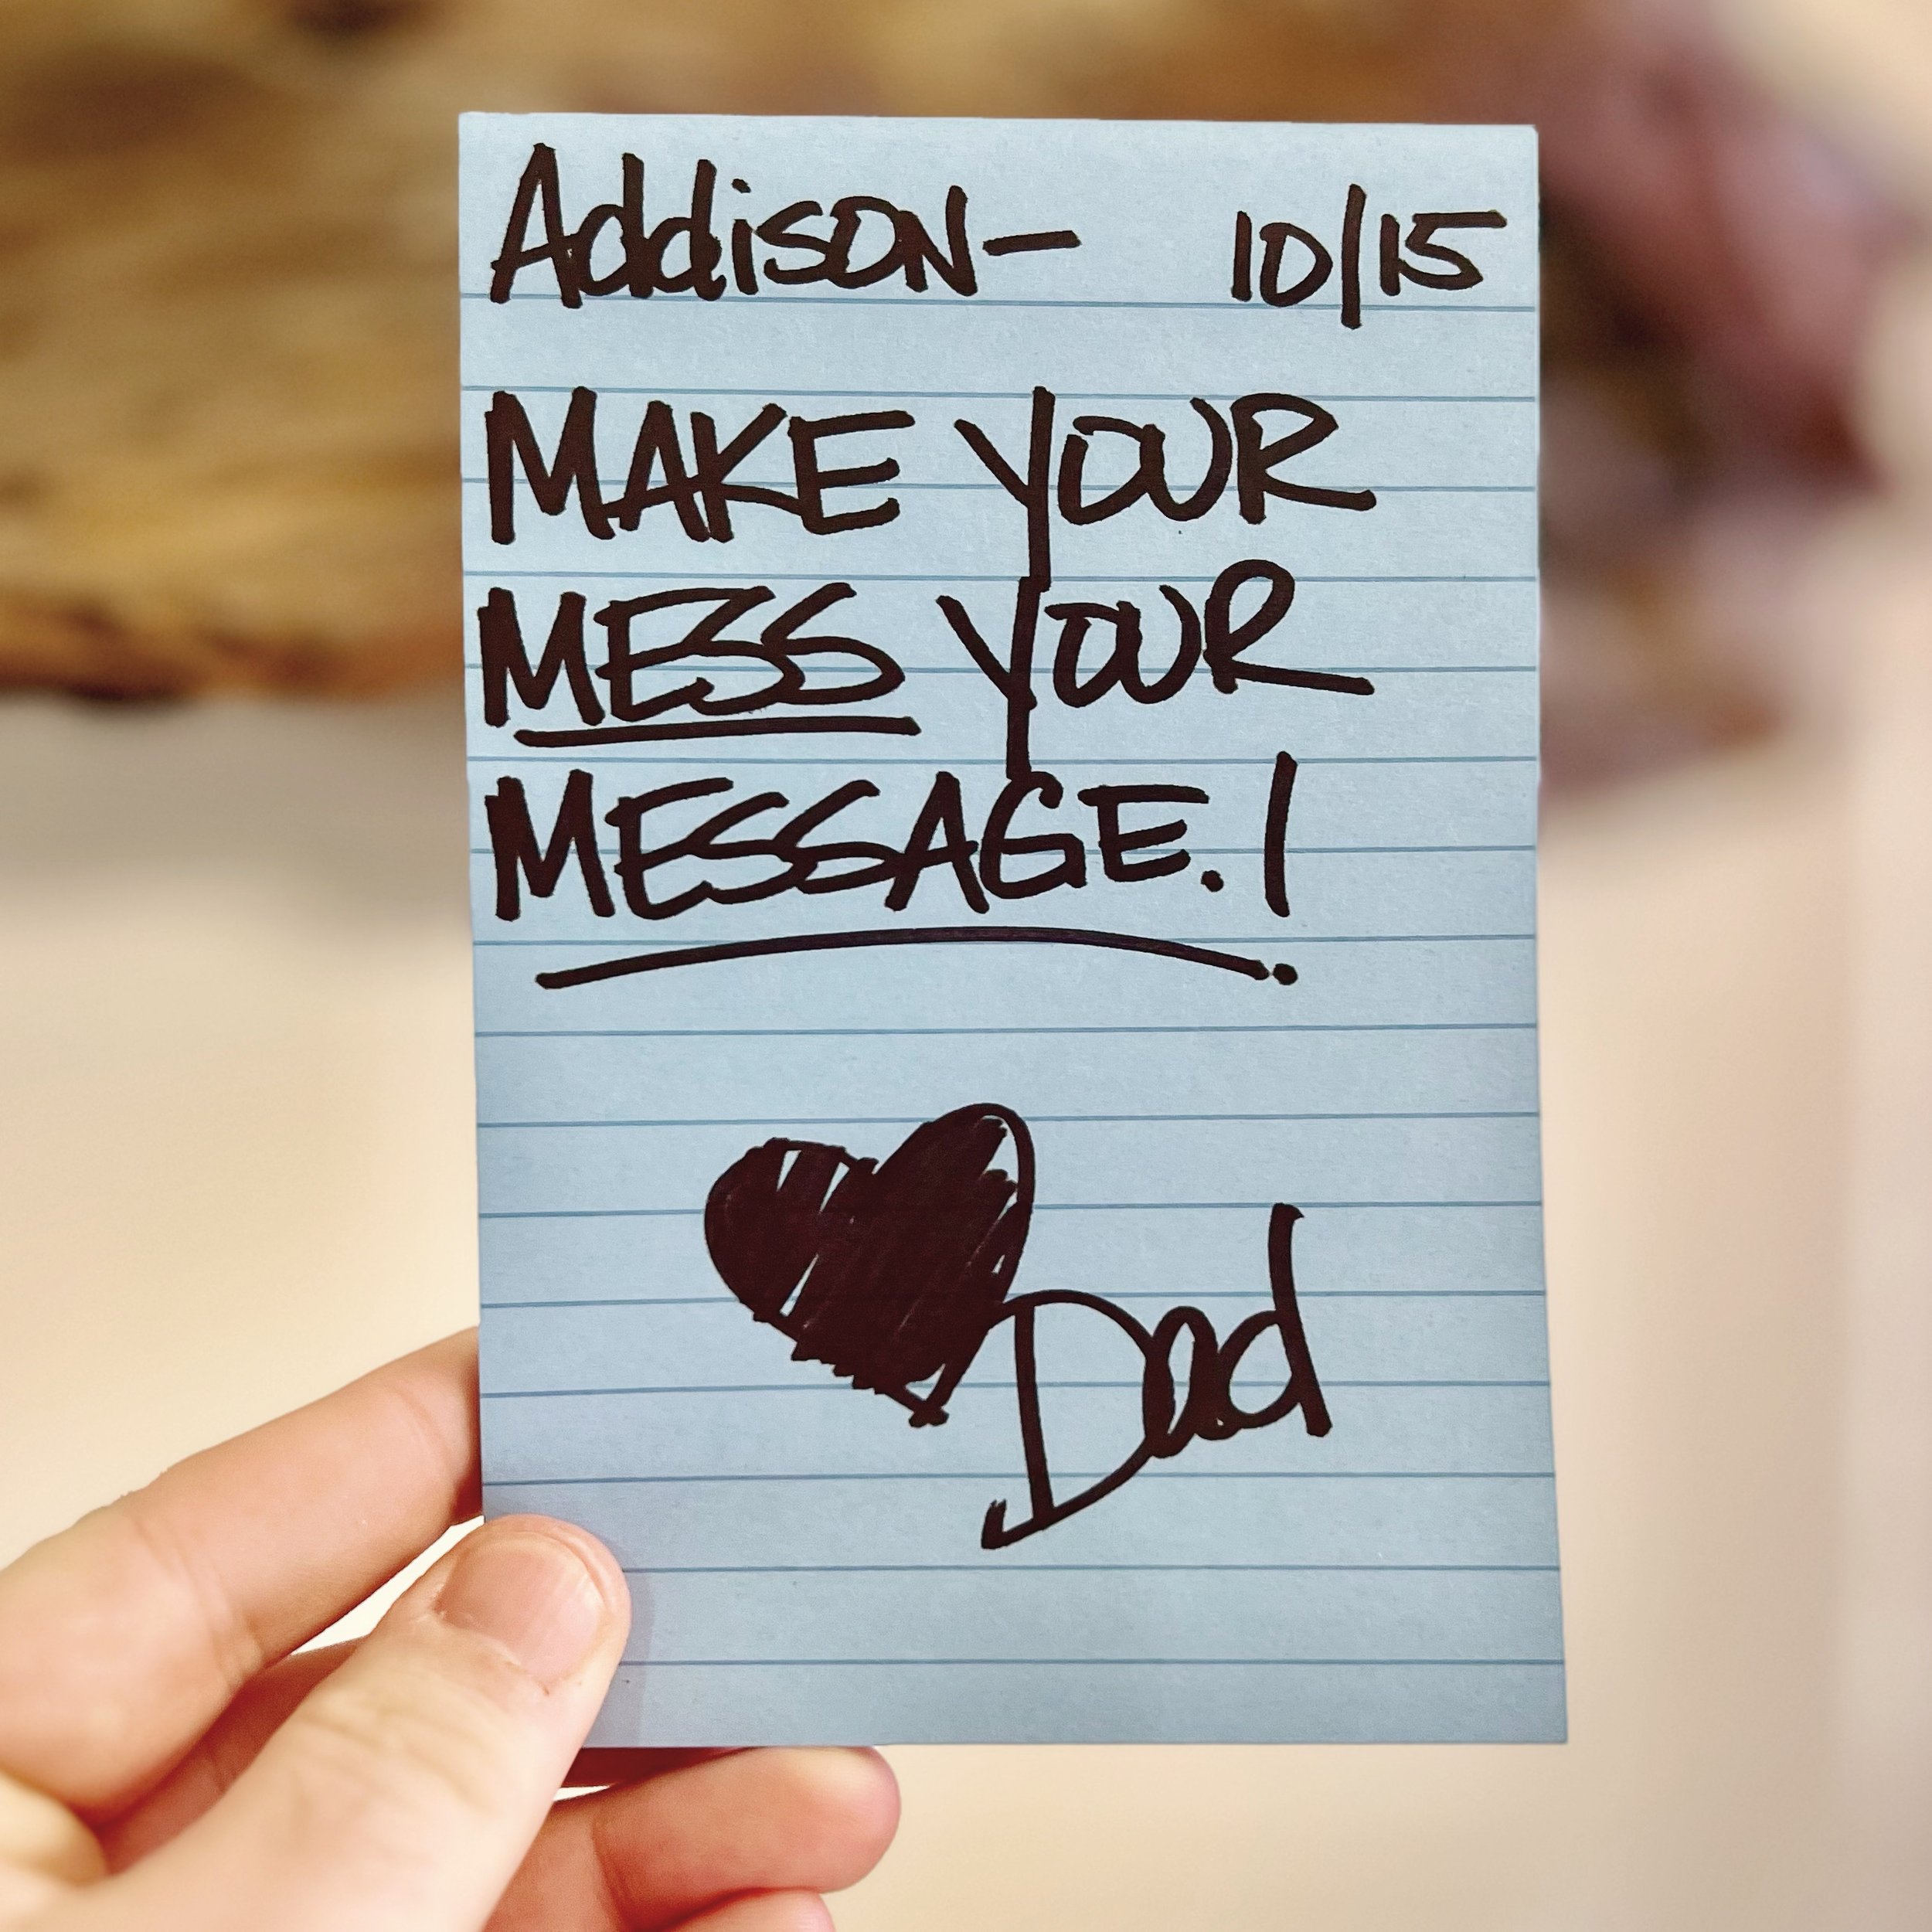 Addison- 10/15
MAKE YOUR
MESS YOUR
MESSAGE.!
Dad